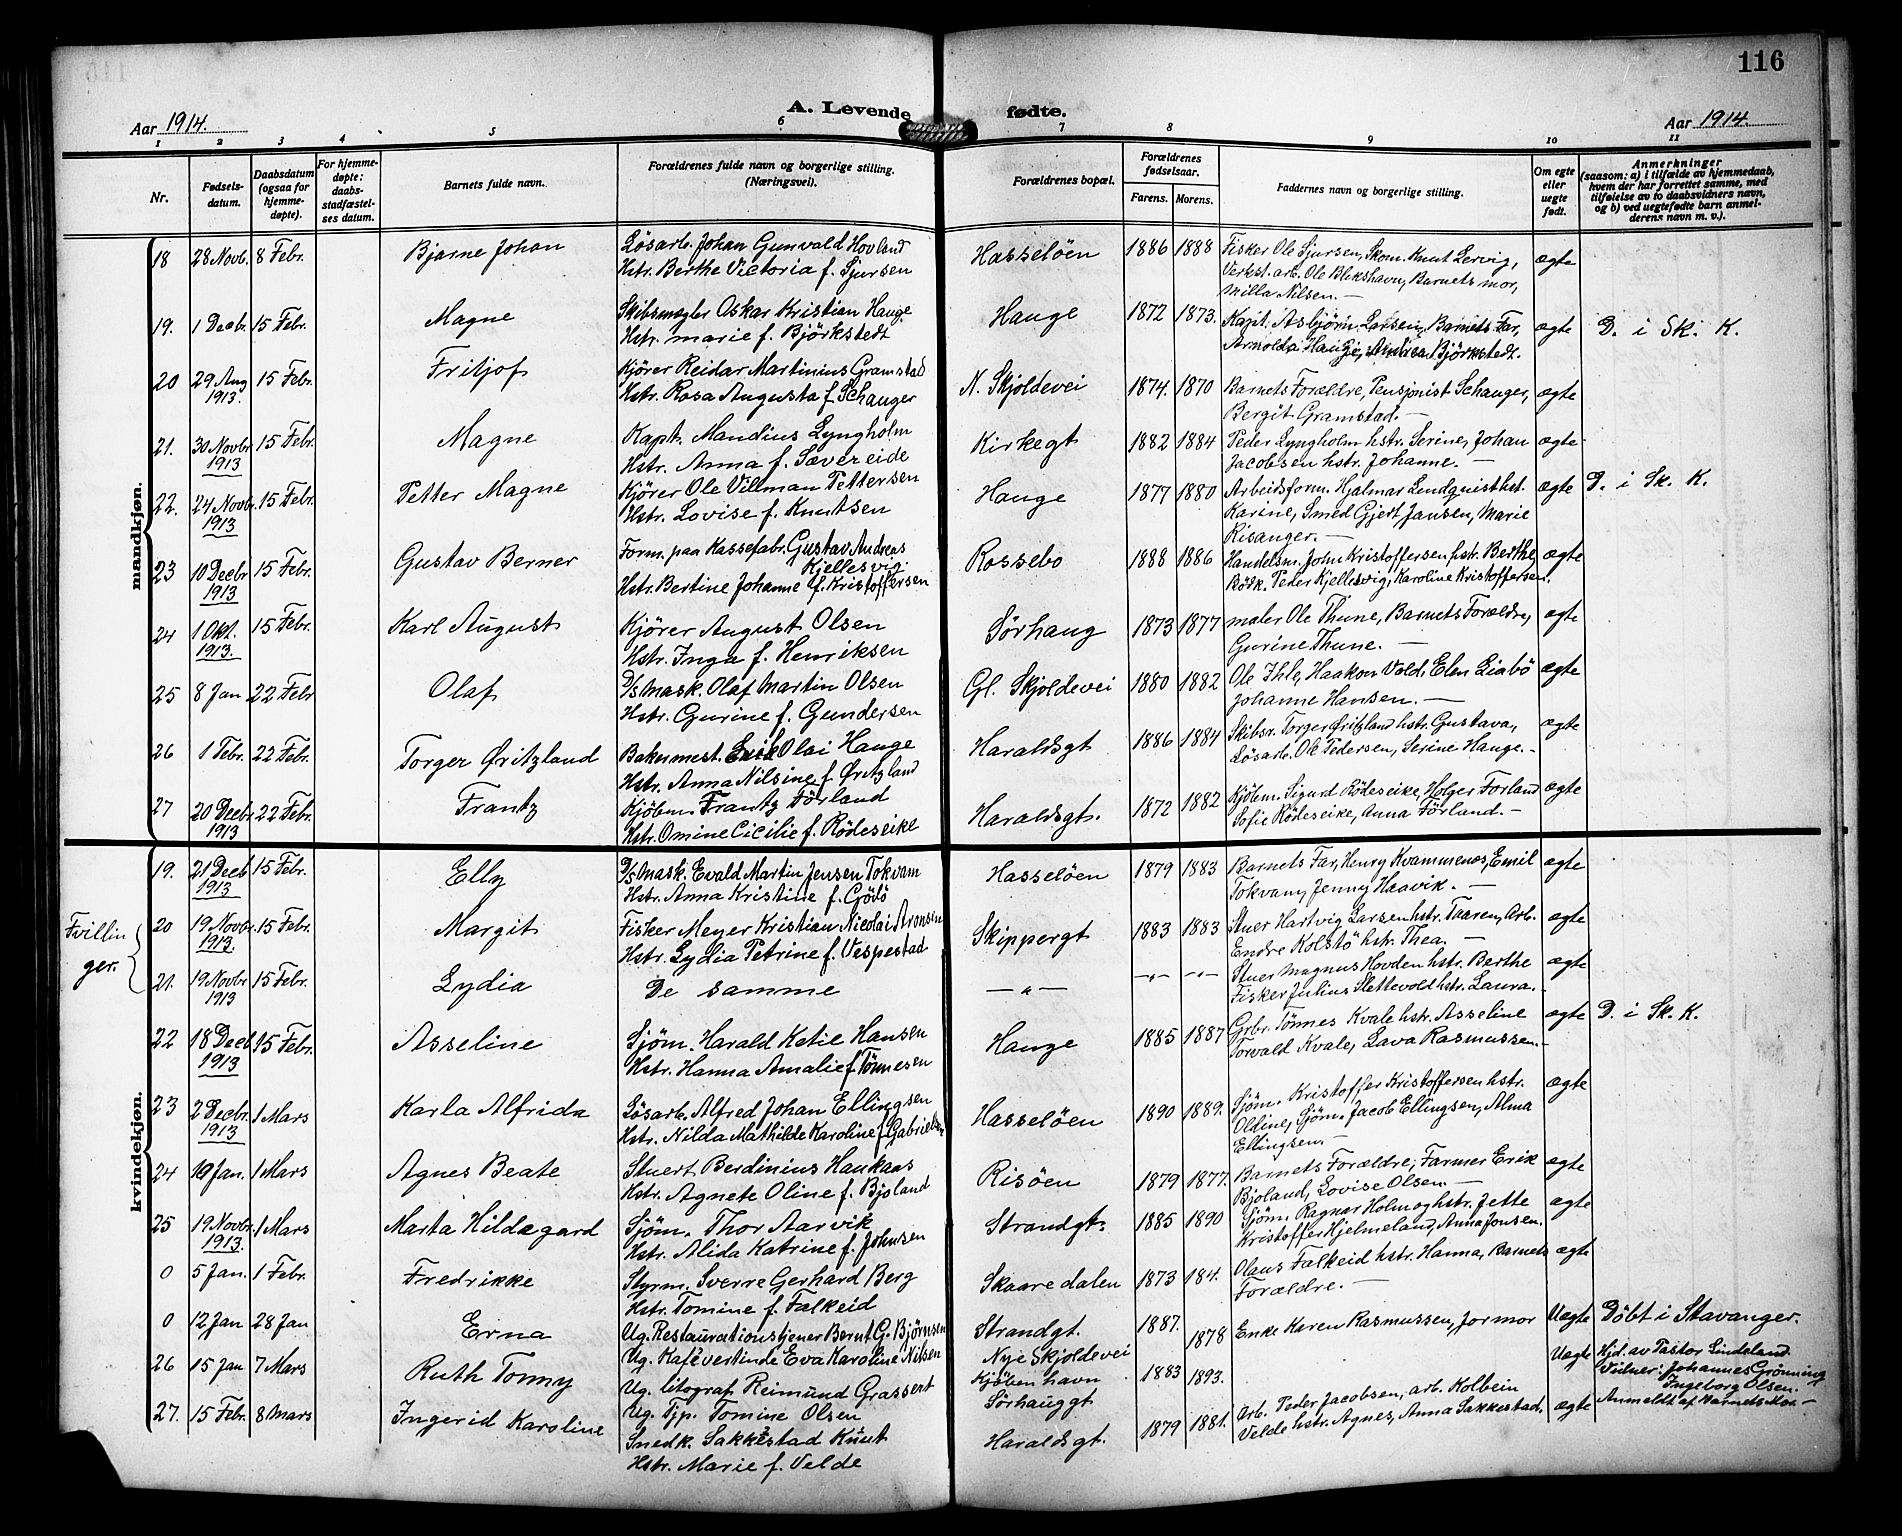 116
A. Levende fødte.
Aar 1914.
Aar 1914.
1 2 3 4 5 6 7 8 9 10 11
Nr.
Fødsels-
datum.
Daabsdatum
(ogsaa for
hjemme-
døpte).
For hjemme-
døpte:
daabs-
stadfæstel-
ses datum.
Barnets fulde navn.
Forældrenes fulde navn og borgerlige stilling.
(Næringsvei).
Forældrenes bopæl.
Forældrenes
fødselsaar.
Farens. Morens.
Faddernes navn og borgerlige stilling.
Om egte
eller
uegte
født.
Anmerkninger
(saasom: a) i tilfælde av hjemmedaab,
hvem der har forrettet samme, med
tilføielse av to daabsvidners navn,
og b) ved uegtefødte barn anmel-
derens navn m. v.).
mandkjøn.
18 28 Novb. 8 Febr. Bjarne Johan Løsarb. Johan Gunvald Hovland Hasseløen 1886 1888 Fisker Ole Sjursen, Skom. Knut Lervig, ægte
Hstr. Berthe Victoria f. Sjursen Verkst. arb. Ole Blikshavn, Barnets mor,
Milla Nilsen. —
19. 1 Decbr. 15 Febr. Magne Skibsmægler Oskar Kristian Hauge Hauge 1872 1873. Kapt. Asbjørn Larsen, Barnets Far, ægte D. i Sk. K.
Hstr. Marie f. Björkstedt Arnolda Hauge, Andrea Björkstedt.
20 29 Aug 15 Febr. Fritjof Kjører Reidar Martinius Gramstad N. Skjoldevei 1874. 1870 Barnets Forældre, Pensjonist Schanger, ægte
1913. Hstr. Rosa Augusta f. Schanger Bergit Gramstad. —
21. 30 Novbr 15 Febr. Magne Kapt. Mandius Lyngholm Kirkegt 1882 1884 Peder Lyngholm hstr. Serine, Johan ægte
1913 Hstr. Anna f. Sævereide Jacobsen hstr. Johanne. —
22. 24 Novbr. 15 Febr. Petter Magne Kjører Ole Villman Pettersen Hauge 1877 1880 Arbeidsform. Hjalmar Lindquist hst. ægte D. i Sk. K.
1913 Hstr. Lovise f. Knutsen Karine, Smed Gjert Jansen, Marie
Risanger. —
23 10 Decbr 15 Febr. Gustav Berner Form. paa Kassefabr. Gustav Andreas Rossebo 1888 1886 Handelsm. John Kristoffersen hstr. Berthe, ægte
Kjellesvig
1913 Hstr. Bertine Johanne f. Kristoffersen Bødk. Peder Kjellesvig, Karoline Kristoffersen.
24 1 Okt. 15 Febr. Karl August Kjører August Olsen Sørhaug 1873 1877 Maler Ole Thune, Barnets Forældre, ægte
1913. Hstr. Inga f. Henriksen Gurine Thune. —
25 8 Jan 22 Febr Olaf D/S Mask. Olaf Martin Olsen Gl. Skjoldevei 1880 1882 Ole Ihle, Haakon Vold, Elen Liabö ægte
Hstr. Gurine f. Gundersen Johanne Hansen. —
26 1 Febr. 22 Febr. Torger Øritzland Bakermest. Olai Hauge Haraldsgt 1886 1884 Skibsr. Torger Øritzland hstr. Gustava, ægte
Hstr. Anna Nilsine f. Øritzland Løsarb. Ole Pedersen, Serine Hauge. —
27 20 Decbr 22 Febr. Frantz Kjøbm. Frantz Förland Haraldsgt. 1872 1882 Kjøbm. Sigurd Rödeseike, Holger Forland ægte
1913 Hstr. Omine Cicilie f. Rödeseike Sofie Rödeseike, Anna Förland. —
kvindekjøn.
19. 21 Decb 15 Febr. Elly D/S Mask. Evald Martin Jensen Tokvam Hasseløen 1879 1883 Barnets Far, Henry Kvammenes, Emil ægte
1913 Hstr. Anna Kristine f. Gödö Tokvam, Jenny Haavik. —
Tvillin
ger.
20 19 Novbr. 15 Febr. Margit Fisker Meyer Kristian Nicolai Aronsen Skippergt 1883 1883 Stuer Hartvig Larsen hstr. Taaren, Arb. ægte
1913. Hstr. Lydia Petrine f. Vespestad Endre Kolstö hstr. Thea. —
21. 19 Novbr 15 Febr. Lydia De samme —"— —"— —"— Stuer Magnus Hovden hstr. Berthe ægte
1913 Fisker Julius Slettevold hstr. Laura. —
22 18 Decb 15 Febr. Asseline Sjøm. Harald Ketil Hansen Hauge 1885 1887 Grbr. Tönnes Kvale hstr. Asseline ægte D. i Sk. K.
1913 Hstr. Hanna Amalie f. Tönnesen Torvald Kvale, Lava Rasmussen. —
23 2 Decbr. 1 Mars Karla Alfrida Løsarb. Alfred Johan Ellingsen Hasseløen 1890 1889. Sjøm. Kristoffer Kristoffersen hstr. ægte
1913 Hstr. Nilda Mathilde Karoline f. Gabrielsen Oldine, Sjøm. Jacob Ellingsen, Alma
Ellingsen. —
24 Jan. 1 Mars Agnes Beate Stuert Berdinius Haukaas Risöen 1879 1877. Barnets Forældre, Farmer Erik ægte
Hstr. Agnete Oline f. Bjoland Bjoland, Lovise Olsen. —
25 19 Novbr. 1 Mars Marta Hildegard Sjöm. Thor Aarvik Strandgt. 1885 1890 Sjöm. Ragnar Holmog hstr. Jette ægte
1913. Hstr. Alida Katrine f. Johnsen Kristoffer Hjelmeland, Anna Jonsen.
0 5 Jan. 1 Febr. Fredrikke Styrm. Sverre Gerhard Berg Skaaredalen 1873 184. Olaus Falkeid hstr. Hanna, Barnets ægte
Hstr. Tomine f. Falkeid Forældre. —
0 12 Jan 28 Jan Erna Ug. Restaurationstjener Bernt G. Bjørnsen Strandgt. 1887. Enke Karen Rasmussen, Jormor Uægte Döbt i Stavanger.
Ug. Kaféværtinde Eva Karoline Nilsen Nye Skjoldevei 1878
26 15 Jan 7 Mars Ruth Tonny Ug. litograf Reimund Grassert Kjöbenhavn 1883 1893. Uægte Hjd. av Pastor Lindeland
Ug. Tjp. Tomine Olsen Sörhauggt Vidner: Johannes Grönning
Ingeborg Olsen.
Anmeldt af Barnets Mor —
27. 15 Febr. 8 Mars Ingerid Karoline Snedk. Sakkestad Knut Haraldsgt. 1879 1881. Arb. Peder Jacobsen, arb. Kolbein ægte
Hstr. Marie f. Velde Velde hstr. Agnes, Anna Sakkestad.